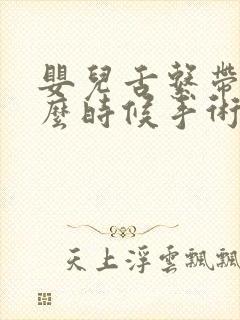 嬰兒舌繫帶
麼時候手術
天上浮雲飄飄